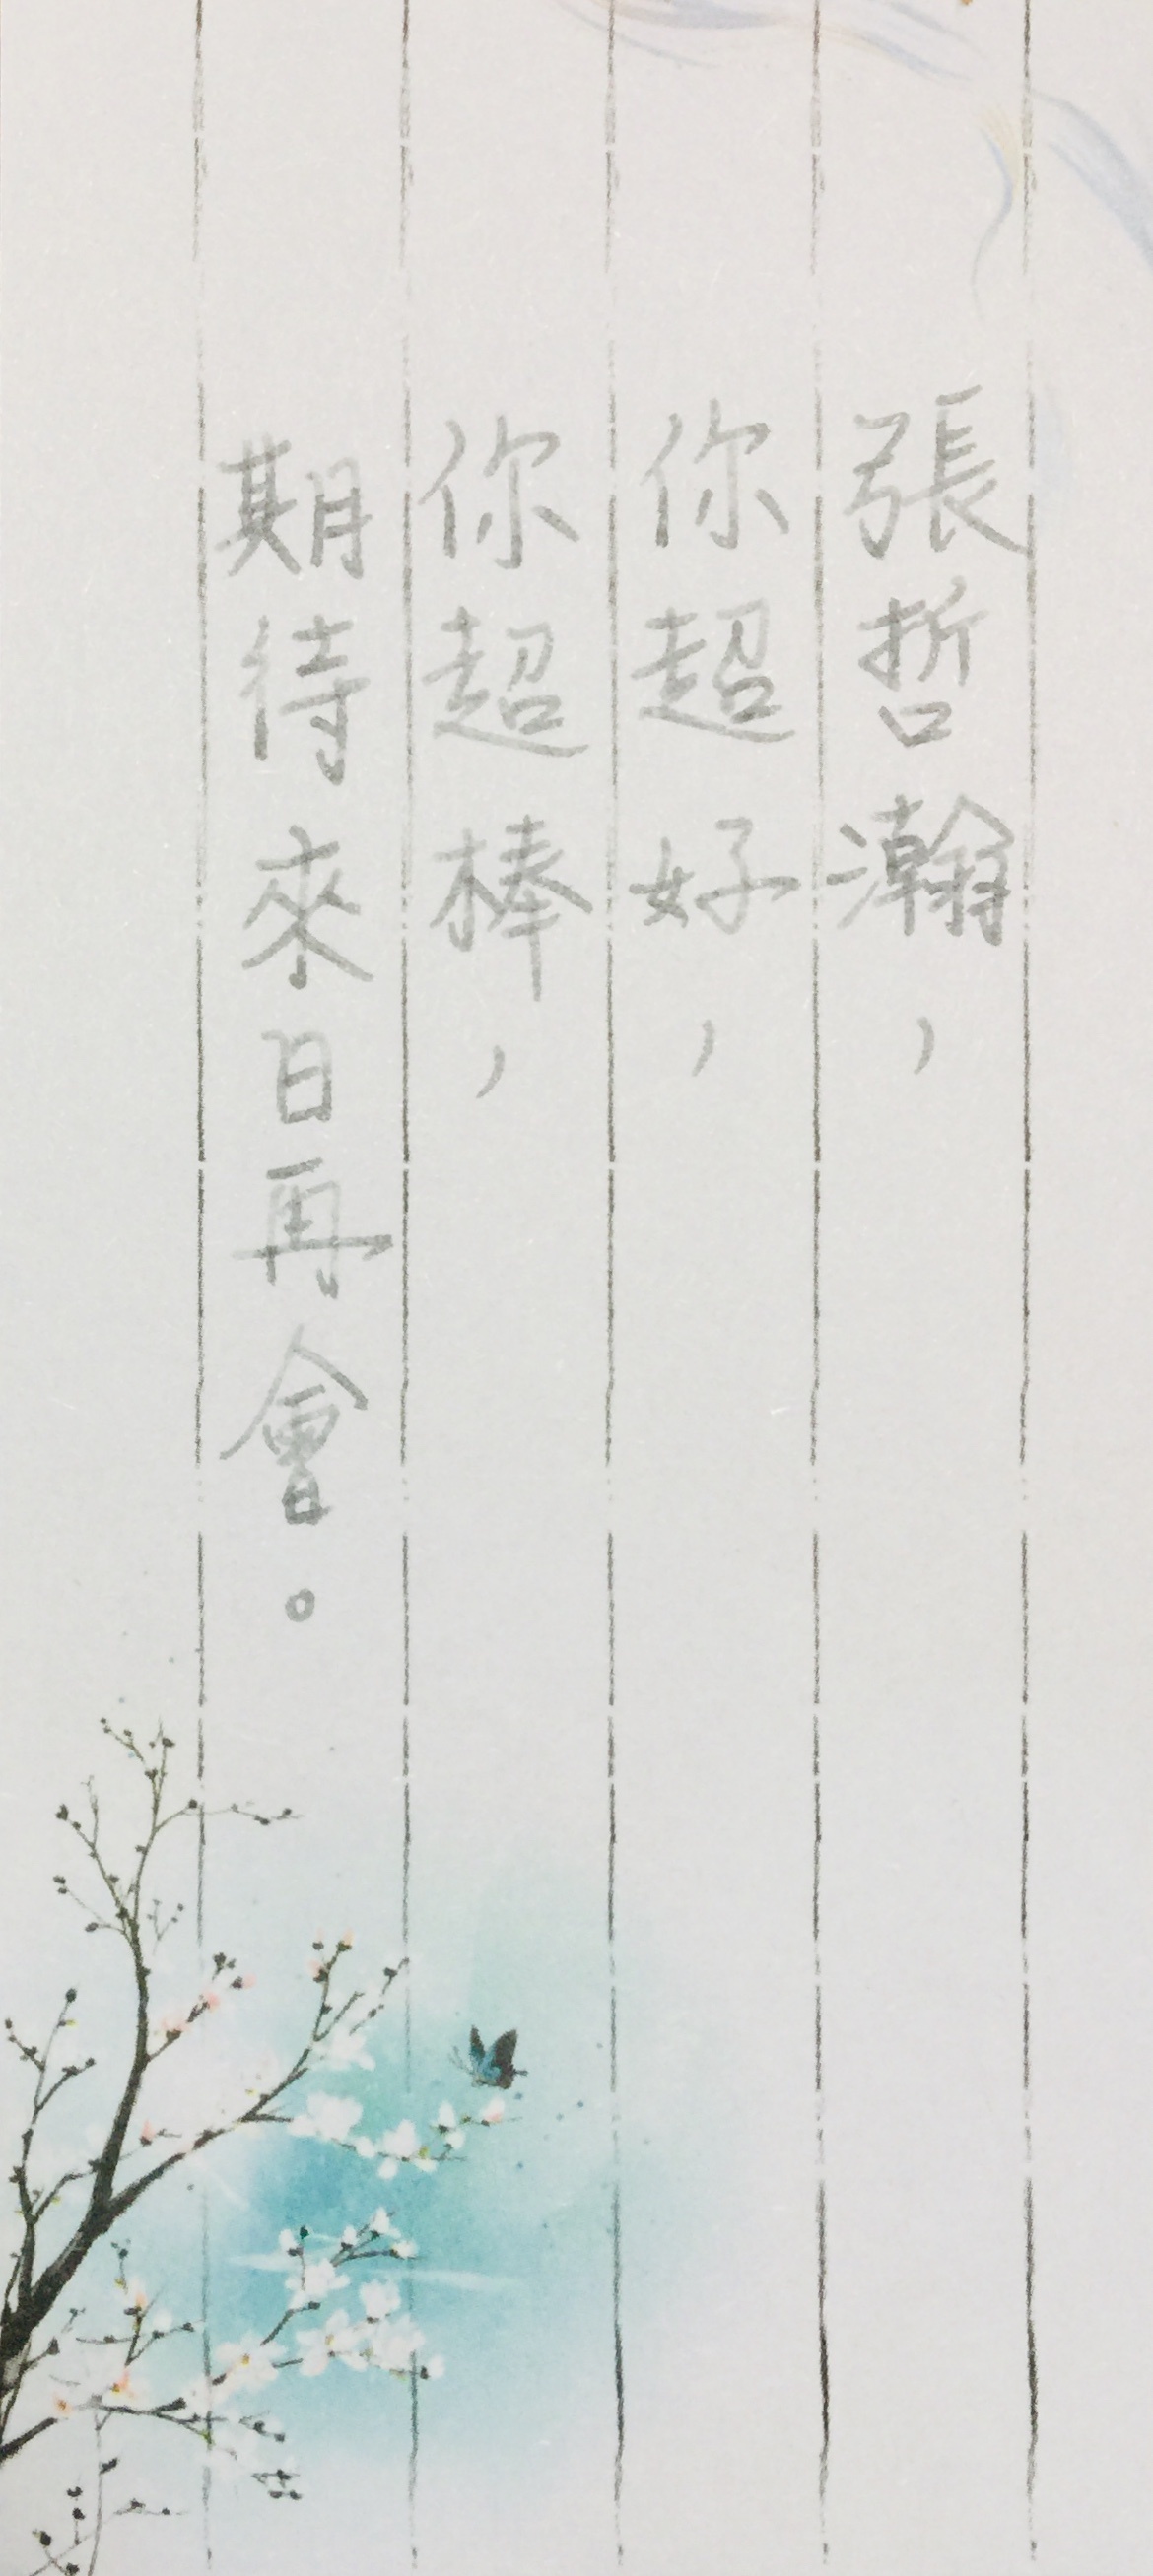 張哲瀚，
你超好，
你超棒，
期待來日再會。